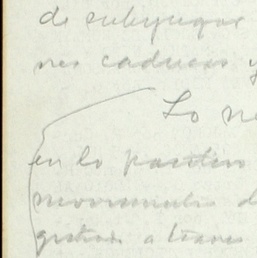 de subyugar
nes caducas y
Lo ne
en lo positivo
movimiento d
a traves